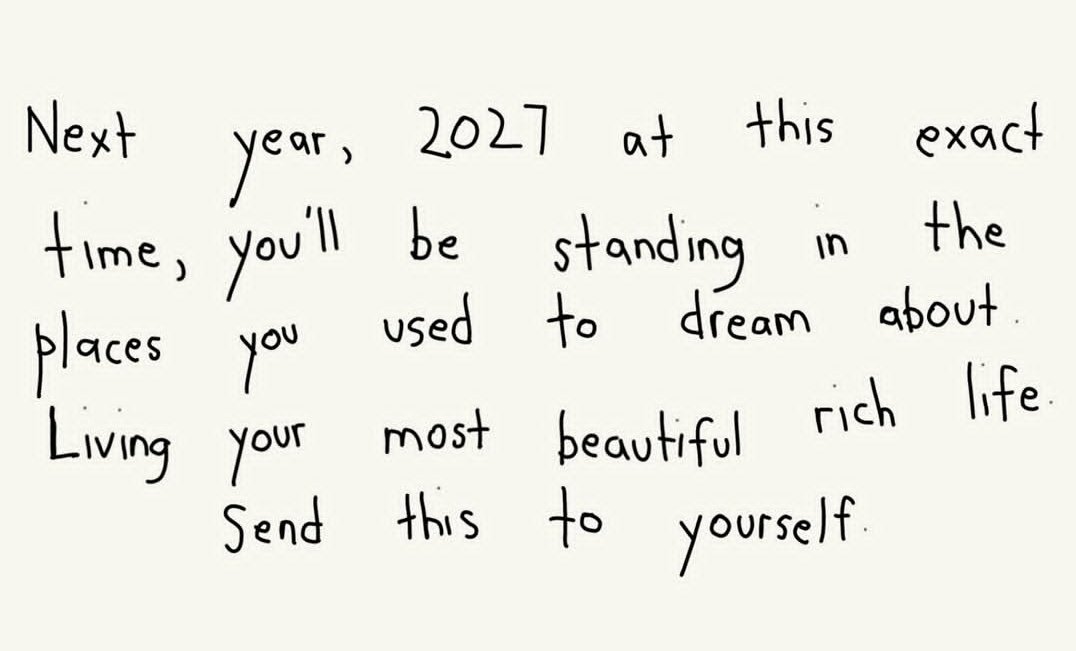 Next year, 2027 at this exact
time, you'll be standing in the
places you used to dream about.
Living your most beautiful rich life.
Send this to yourself.